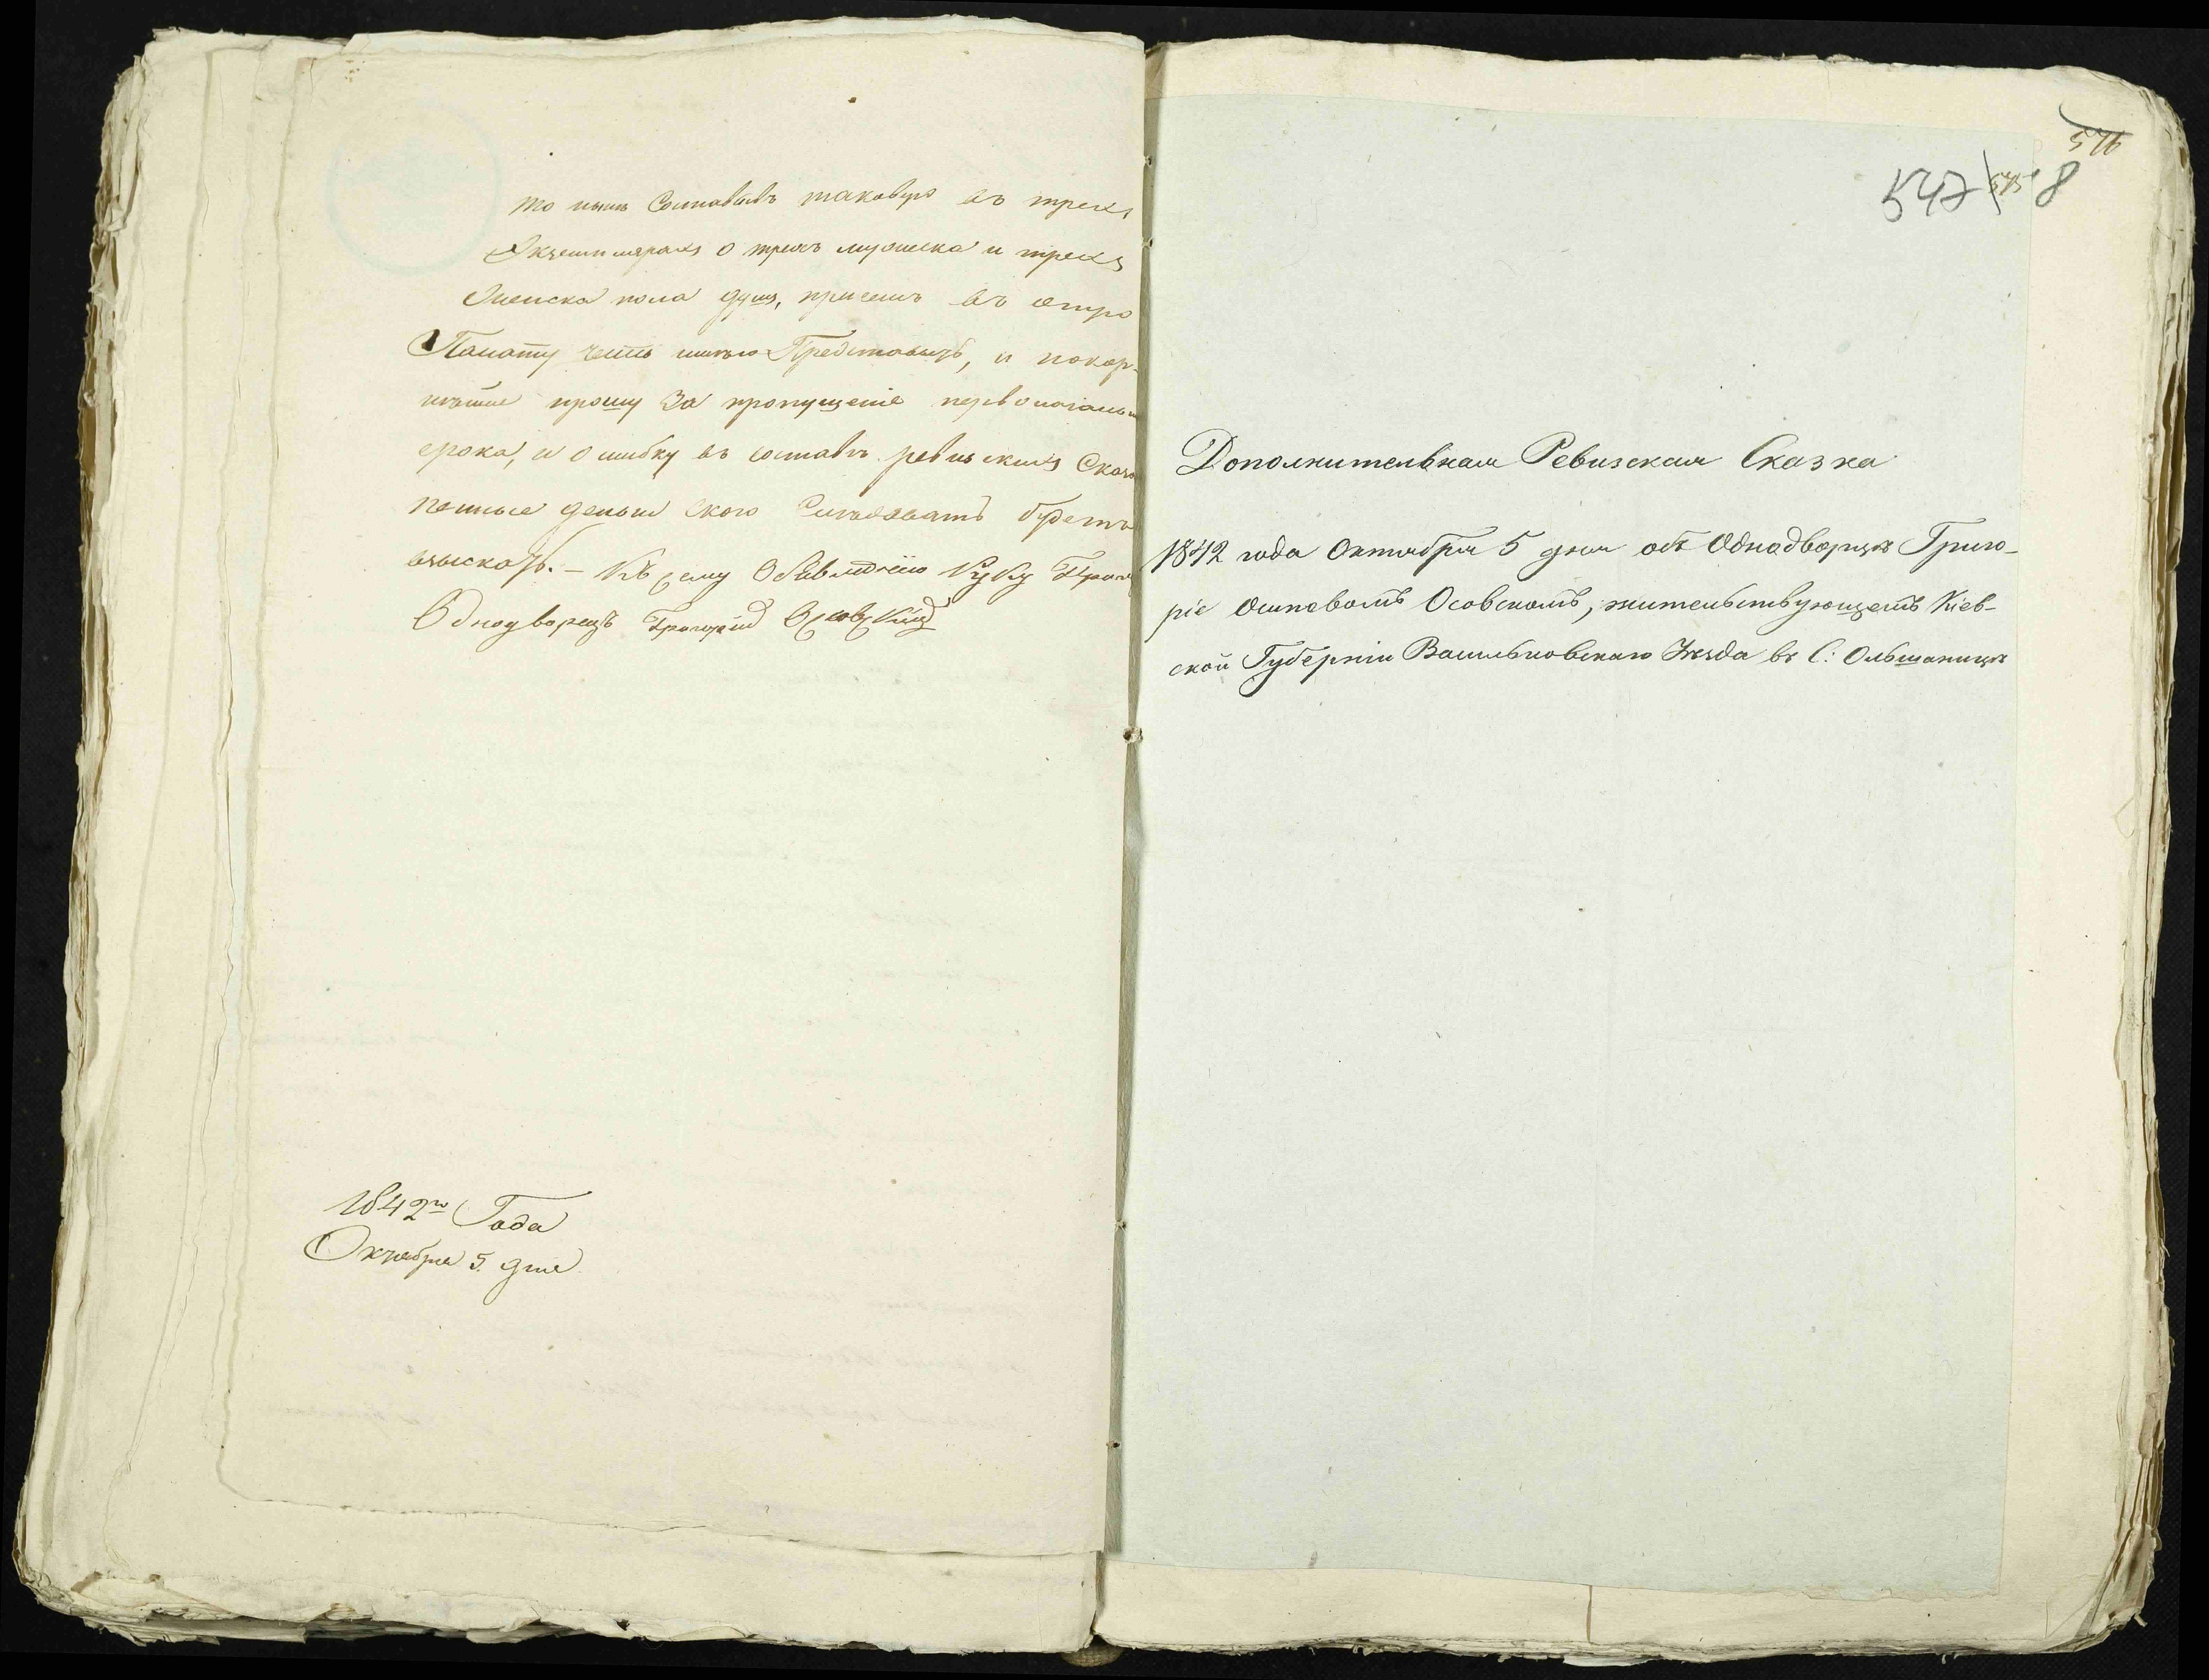 то нынѣ Составивъ таковую въ трехъ
Экземплярахъ о трехъ мужеска и трехъ
Женска пола душъ, присемъ въ оную
Палату честь имѣю Представить, и покор-
нѣйше прошу За пропущеніе первоначальн
срока, и ошибку въ составѣ ревизскихъ Сказо
пенные деньги ского Слѣдовать будетъ
взыскать. – Къ сему Объявленію Руку Прил
Однодворецъ Григорій Осовскій
1842го Года
Октября 5. дня
576
547 575 8
Дополнительная Ревизская Сказка
1842 года Октября 5 дня объ Однадворцѣ Григо-
ріе Осиповомъ Осовскомъ, жительствующемъ Кіев-
ской Губерніи Васильковскаго Уѣзда въ С: Ольшаницѣ